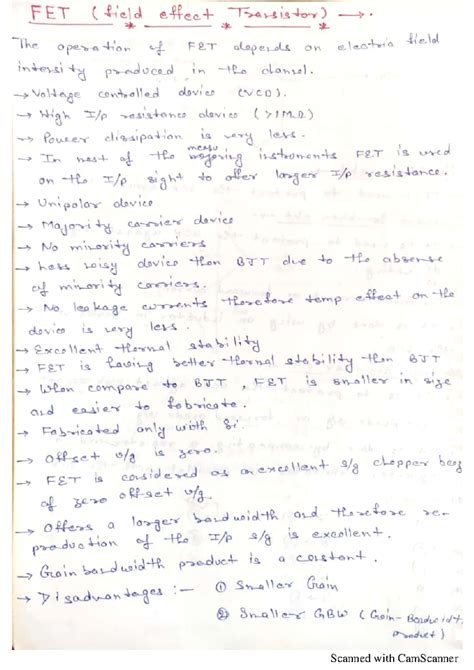 FET (field effect Transistor) →.
The operation of FET depends on electric field
intensity produced in the channel.
→ Voltage controlled device (VCD).
→ High I/p resistance device (>1MΩ)
→ Power dissipation is very less.
→ In most of the measuring instruments FET is used
on the I/p sight to offer larger I/p resistance.
→ Unipolar device
→ Majority carrier device
→ No minority carriers
→ Less noisy device than BJT due to the absense
of minority carriers.
→ No leakage currents therefore temp effect on the
device is very less.
→ Excellent thermal stability
→ FET is having better thermal stability than BJT
→ When compare to BJT, FET is smaller in size
and easier to fabricate.
→ Fabricated only with Si.
→ Offset v/g is zero.
→ FET is considered as an excellent s/g chopper becz
of zero off-set v/g.
→ Offers a larger bandwidth and therefore re-
production of the I/p s/g is excellent.
→ Gain bandwidth product is a constant.
→ Disadvantages :— ① Smaller Gain
② Smaller GBW (Gain-Bandwidth
product)
Scanned with CamScanner